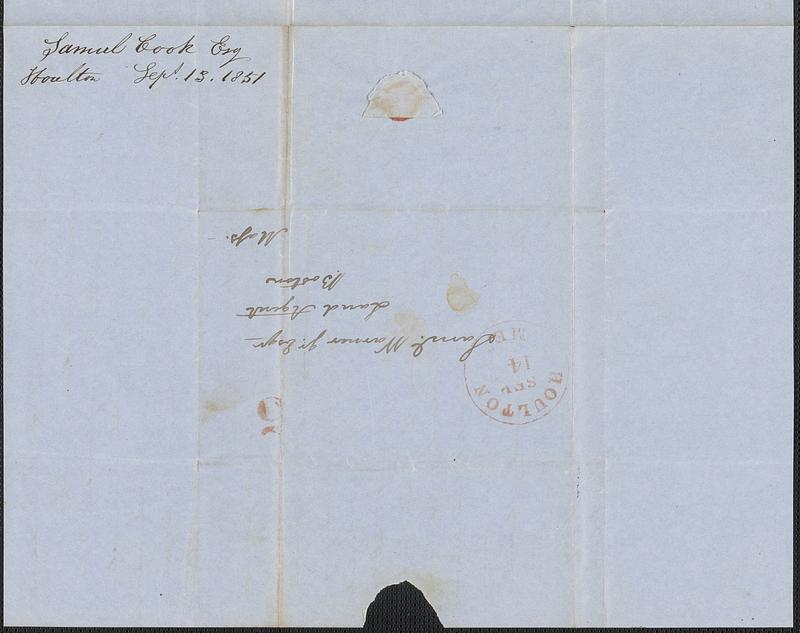 Samuel Cook Esq
Houlton Sept. 13. 1851
Saml. Warner Jr. Esqr
Land Agent
Boston
Mass.
HOULTON
SEP
14
ME